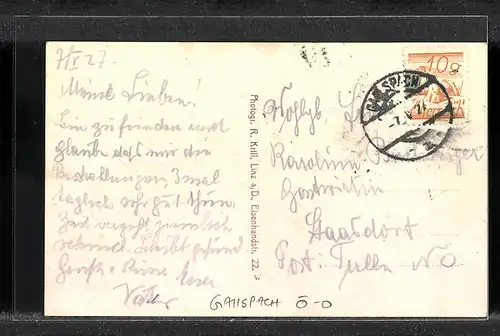 7/V 27.
Meine Lieben!
Bin zufrieden und
glaube das mir die
Bestrahlungen, 3 mal
täglich sehr gut thun.
Zeit vergeht ziemlich
schnell. Bleibt gesund
Grüße + Küsse Euer
Vater
Photogr. R. Krill, Linz a./D., Eisenhandstr. 22.
GALLSPACH
10g
Wohlgb.
Karoline
Staasdorf
Post Tulln N.Ö
GALLSPACH Ö-Ö